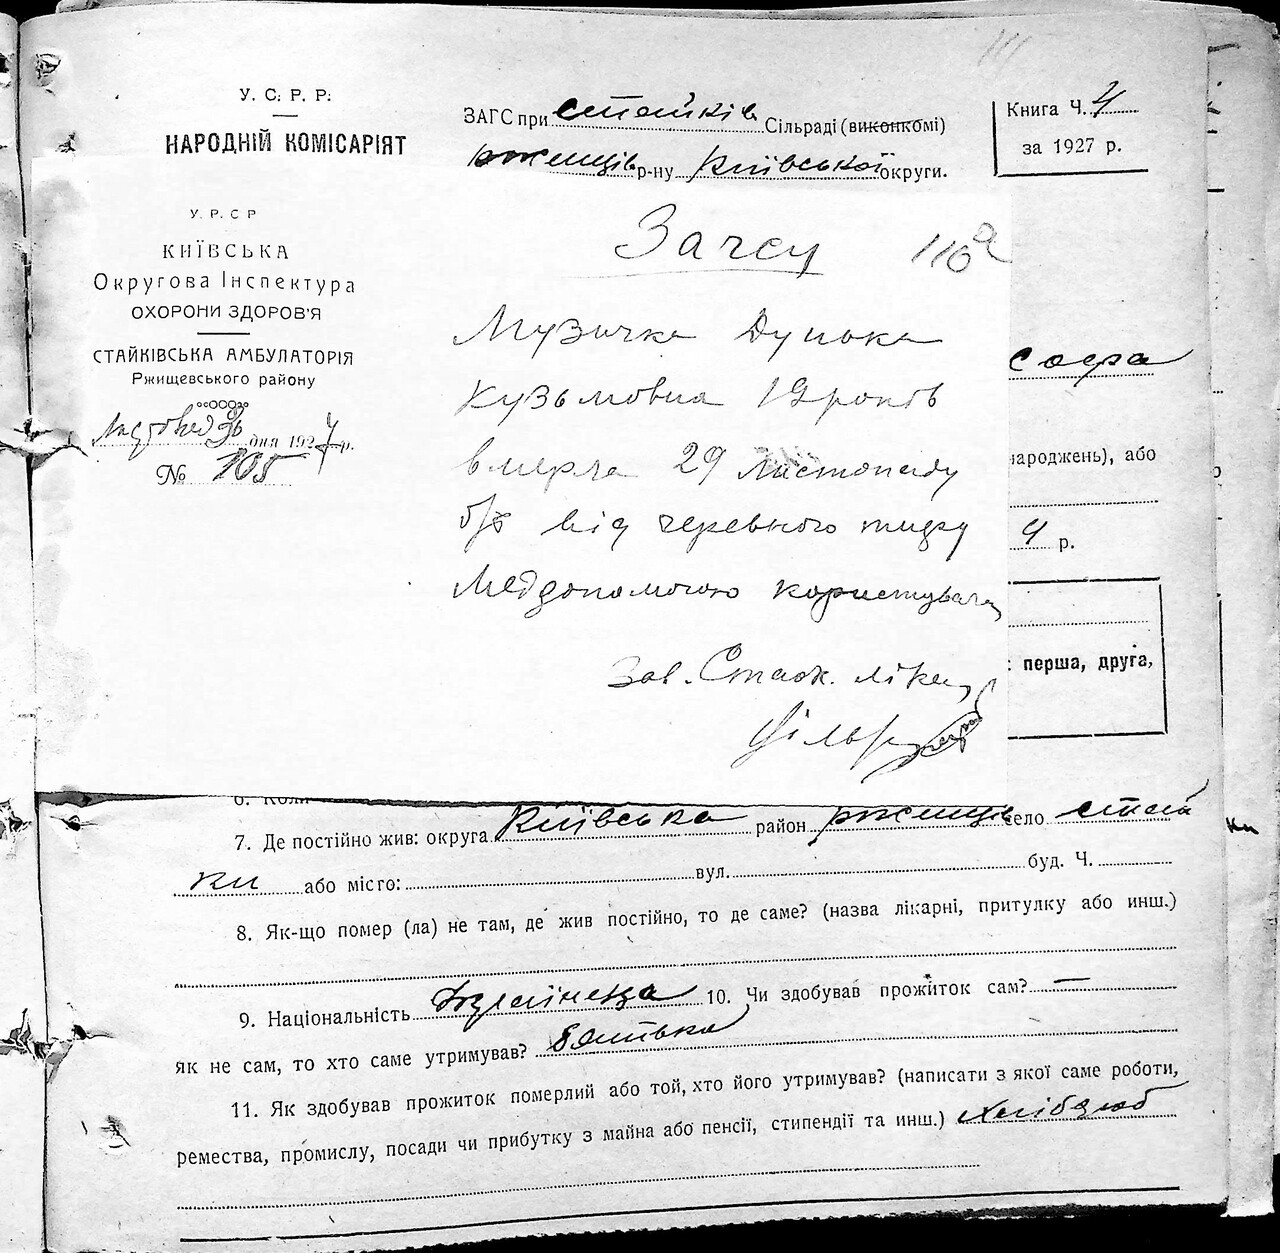 У. С. Р. Р.
НАРОДНІЙ КОМІСАРІЯТ
ЗАГС при Стайків Сільраді (виконкомі)
ржищів р-ну Київської округи.
Книга Ч. 4
за 1927 р.
У. Р. С Р
КИЇВСЬКА
Округова Інспектура
ОХОРОНИ ЗДОРОВ'Я
СТАЙКІВСЬКА АМБУЛАТОРІЯ
Ржищевського району
30 дня 1927 р.
№ 105
Загсу 116а
Музичка Дунька
Кузьмовна 19 років
вмерла 29 Листопаду
б/р від черевного тифу
Меддопомогою користувалась
Зав. Стайк. лікар
народжень), або
4 р.
: перша, друга,
6. Коли
7. Де постійно жив: округа Київська район ржищів село Стай
ки або місто: вул. буд. Ч.
8. Як-що помер (ла) не там, де жив постійно, то де саме? (назва лікарні, притулку або инш.)
9. Національність 10. Чи здобував прожиток сам? —
як не сам, то хто саме утримував? батька
11. Як здобував прожиток померлий або той, хто його утримував? (написати з якої саме роботи,
ремества, промислу, посади чи прибутку з майна або пенсії, стипендії та инш.) хлібороб